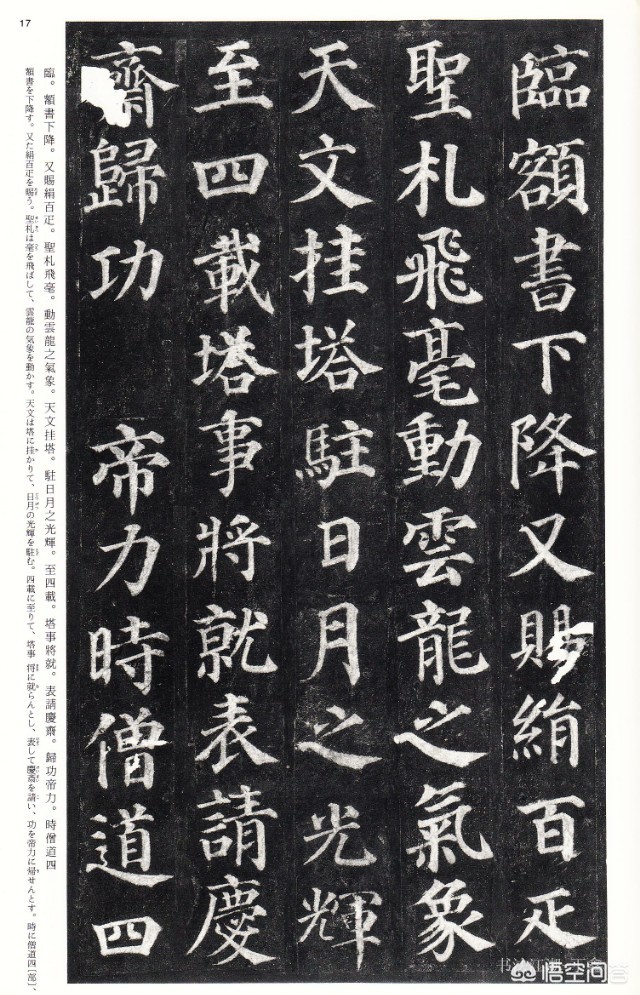 臨額書下降又賜絹百疋
聖札飛毫動雲龍之氣象
天文挂塔駐日月之光輝
至四載塔事將就表請慶
齋歸功 帝力時僧道四
臨。額書下降。又賜絹百疋。聖札飛毫。動雲龍之氣象。天文挂塔。駐日月之光輝。至四載。塔事將就。表請慶齋。歸功帝力。時僧道四
額書を下降す。又た絹百疋を賜う。聖札は毫を飛ばして、雲龍の気象を動かす。天文は塔に挂かりて、日月の光輝を駐む。四載に至りて、塔事将に就らんとし、表して慶斎を請い、功を帝力に帰せんとす。時に僧道四［部］、
17
悟空问答